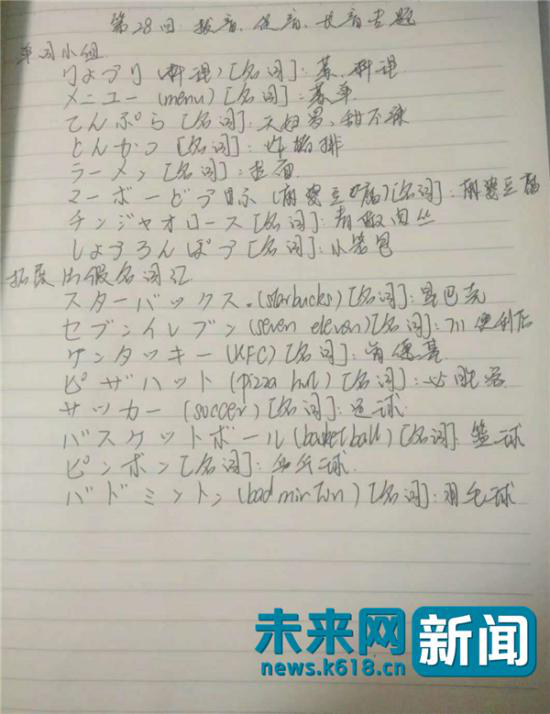 第28回 拨音、促音、长音专题
单词小组
りょうり (料理) [名词]: 菜、料理
メニュー (menu) [名词]: 菜单
てんぷら [名词]: 天妇罗、甜不辣
とんかつ [名词]: 炸猪排
ラーメン [名词]: 拉面
マーボーどうふ (麻婆豆腐) [名词]: 麻婆豆腐
チンジャオロース [名词]: 青椒肉丝
しょうろんぽう [名词]: 小笼包
拓展 片假名词汇
スターバックス (starbucks) [名词]: 星巴克
セブンイレブン (seven eleven) [名词]: 711便利店
ケンタッキー (KFC) [名词]: 肯德基
ピザハット (pizza hut) [名词]: 必胜客
サッカー (soccer) [名词]: 足球
バスケットボール (basketball) [名词]: 篮球
ピンポン [名词]: 乒乓球
バドミントン (badminton) [名词]: 羽毛球
未来网 新闻
news.k618.cn